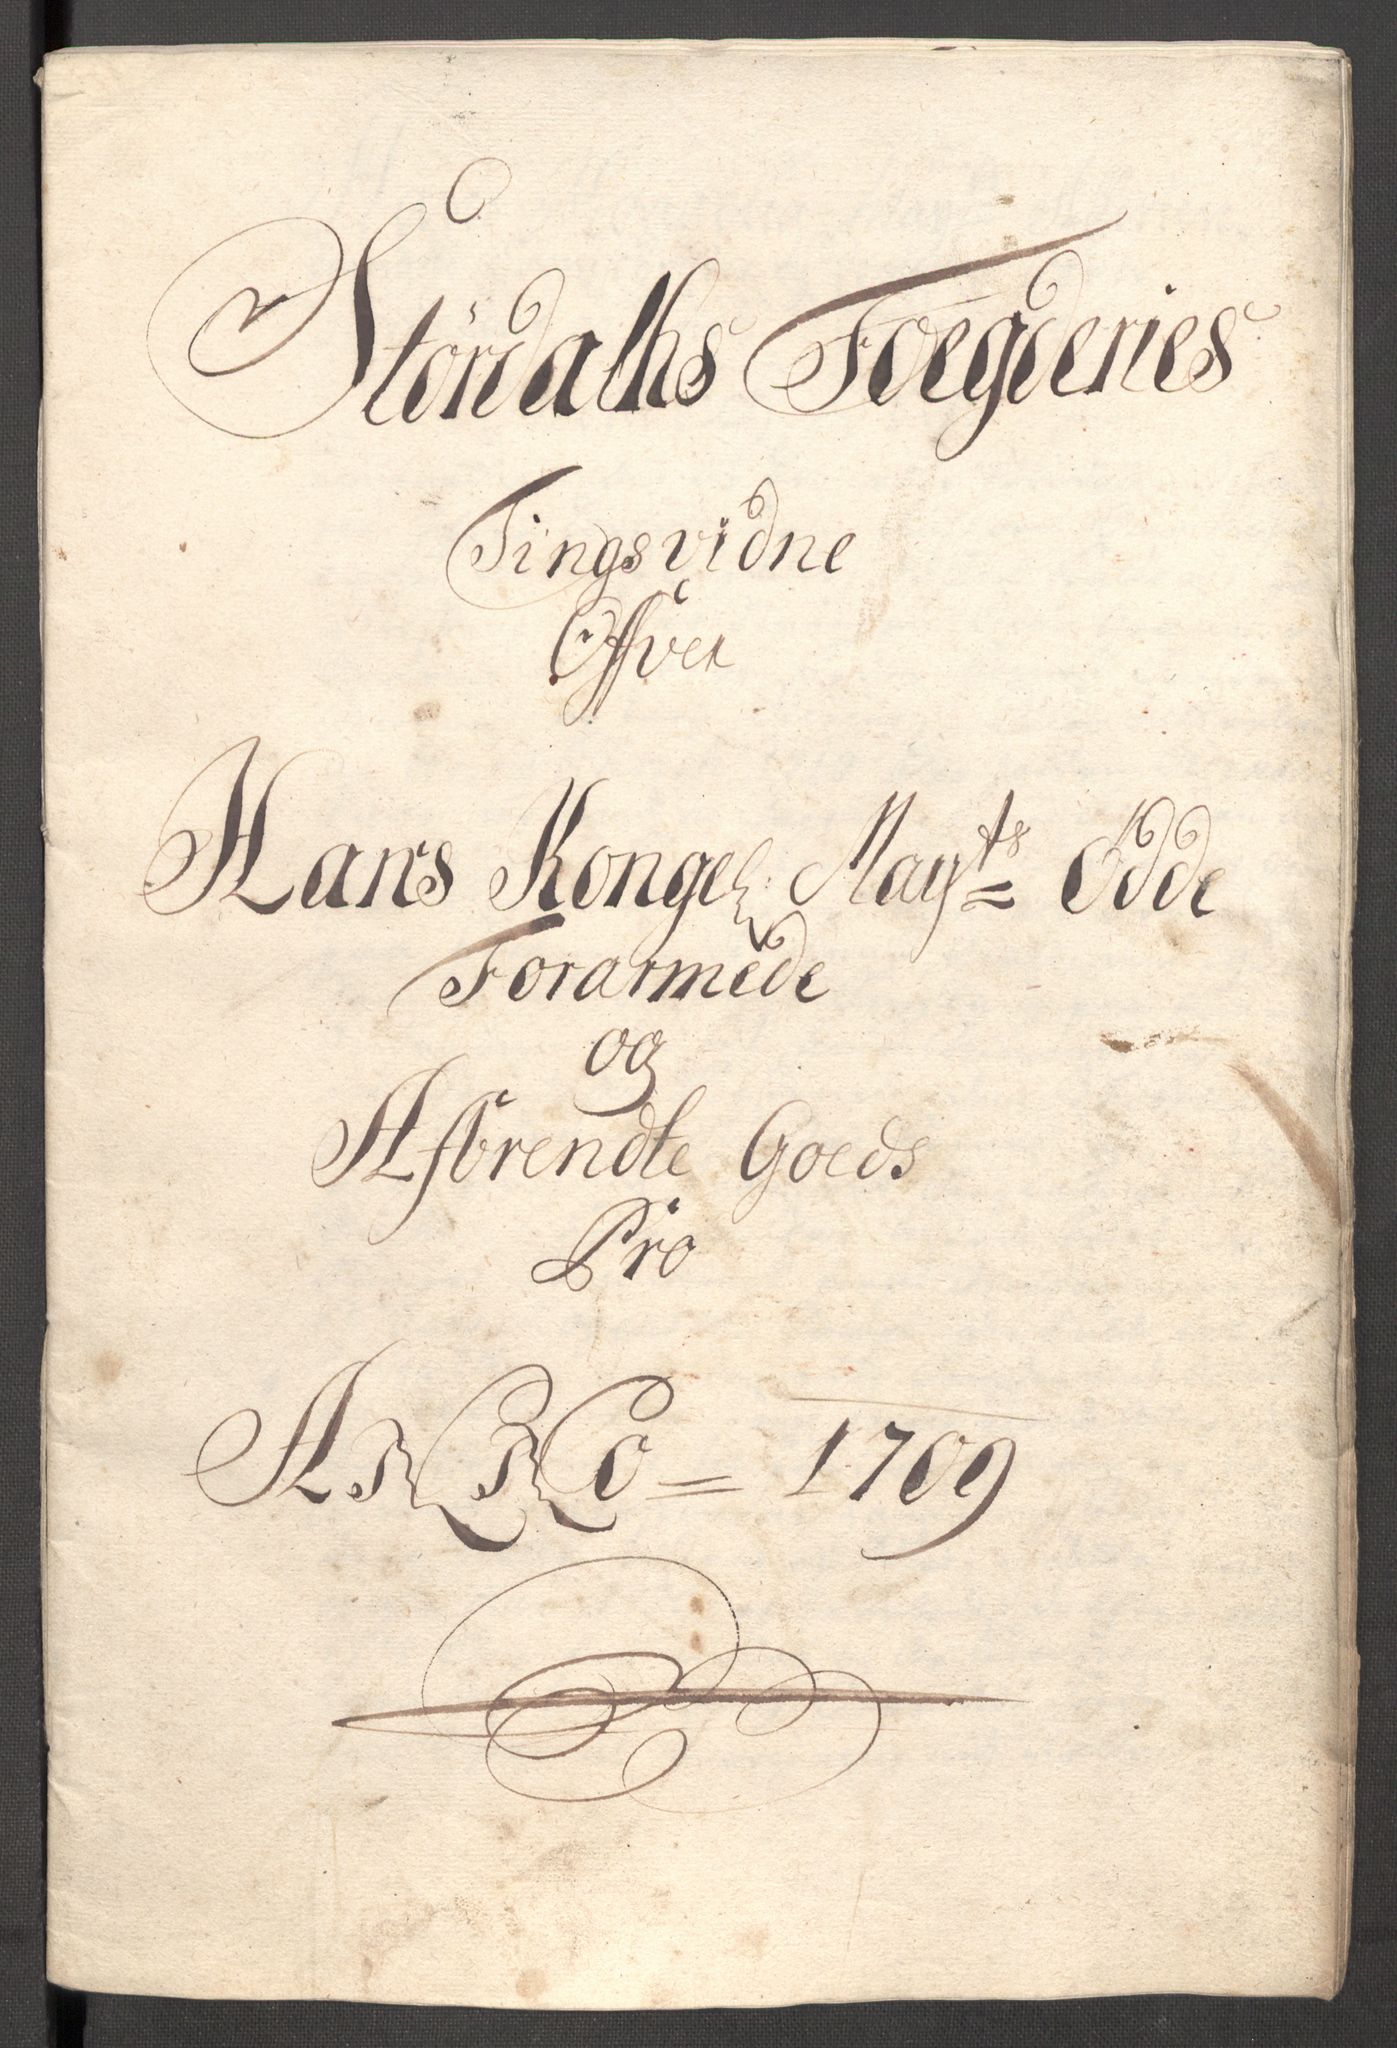 Størdalhs Foegderies
Tingsvidne
Offver
Hans Kongel: May.ts Ødde
Forarmede
og
Afbrendte Goeds
Pro
ANNO = 1709